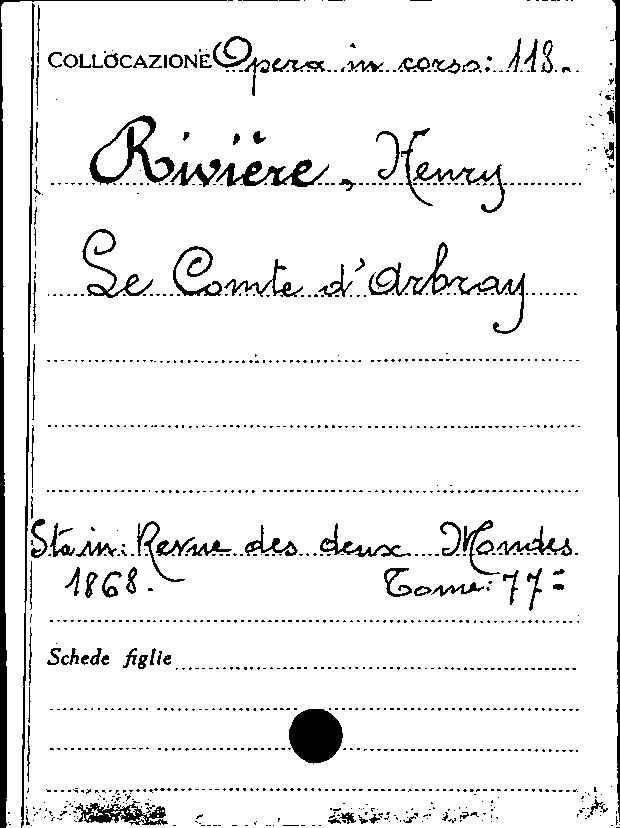 COLLOCAZIONE Opera in corso: 118.
Rivière, Henry
Le Comte d'Arbray
Sta in: Revue des deux Mondes
1868. Tome: 77=
Schede figlie